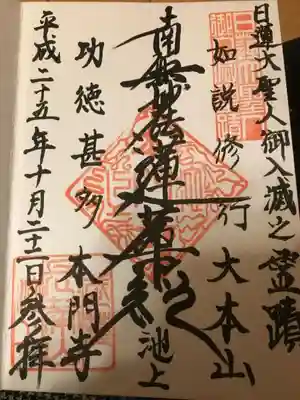 日蓮大聖人御入滅之霊蹟
如説修行 大本山
池上
南無妙法蓮華経
功徳甚多 本門寺
平成二十五年十月二十二日参拝